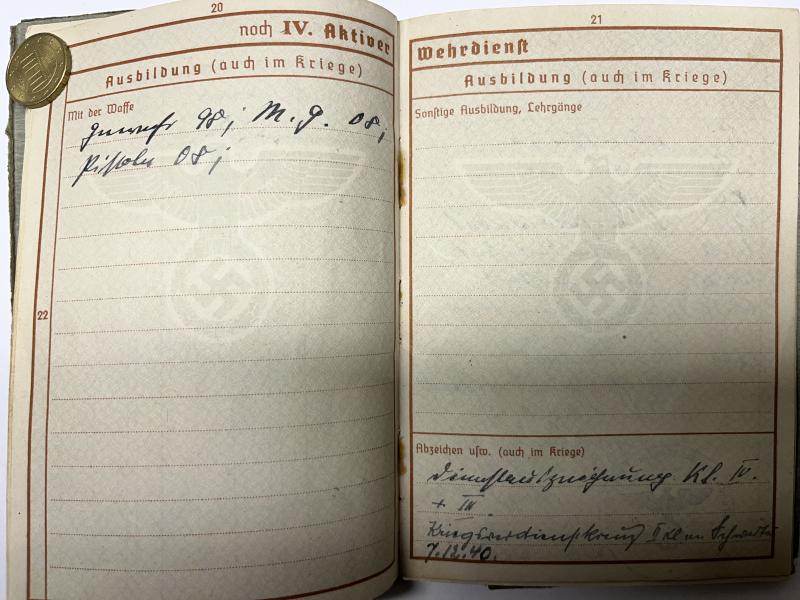 20
noch IV. Aktiver
Ausbildung (auch im Kriege)
Mit der Waffe
Gewehr 98; M.G. 08;
Pistole 08;
22
21
Wehrdienst
Ausbildung (auch im Kriege)
Sonstige Ausbildung, Lehrgänge
Abzeichen usw. (auch im Kriege)
Dienstauszeichnung Kl. IV.
+ III.
Kriegsverdienstkreuz II Kl m Schwerter
7.12.40.